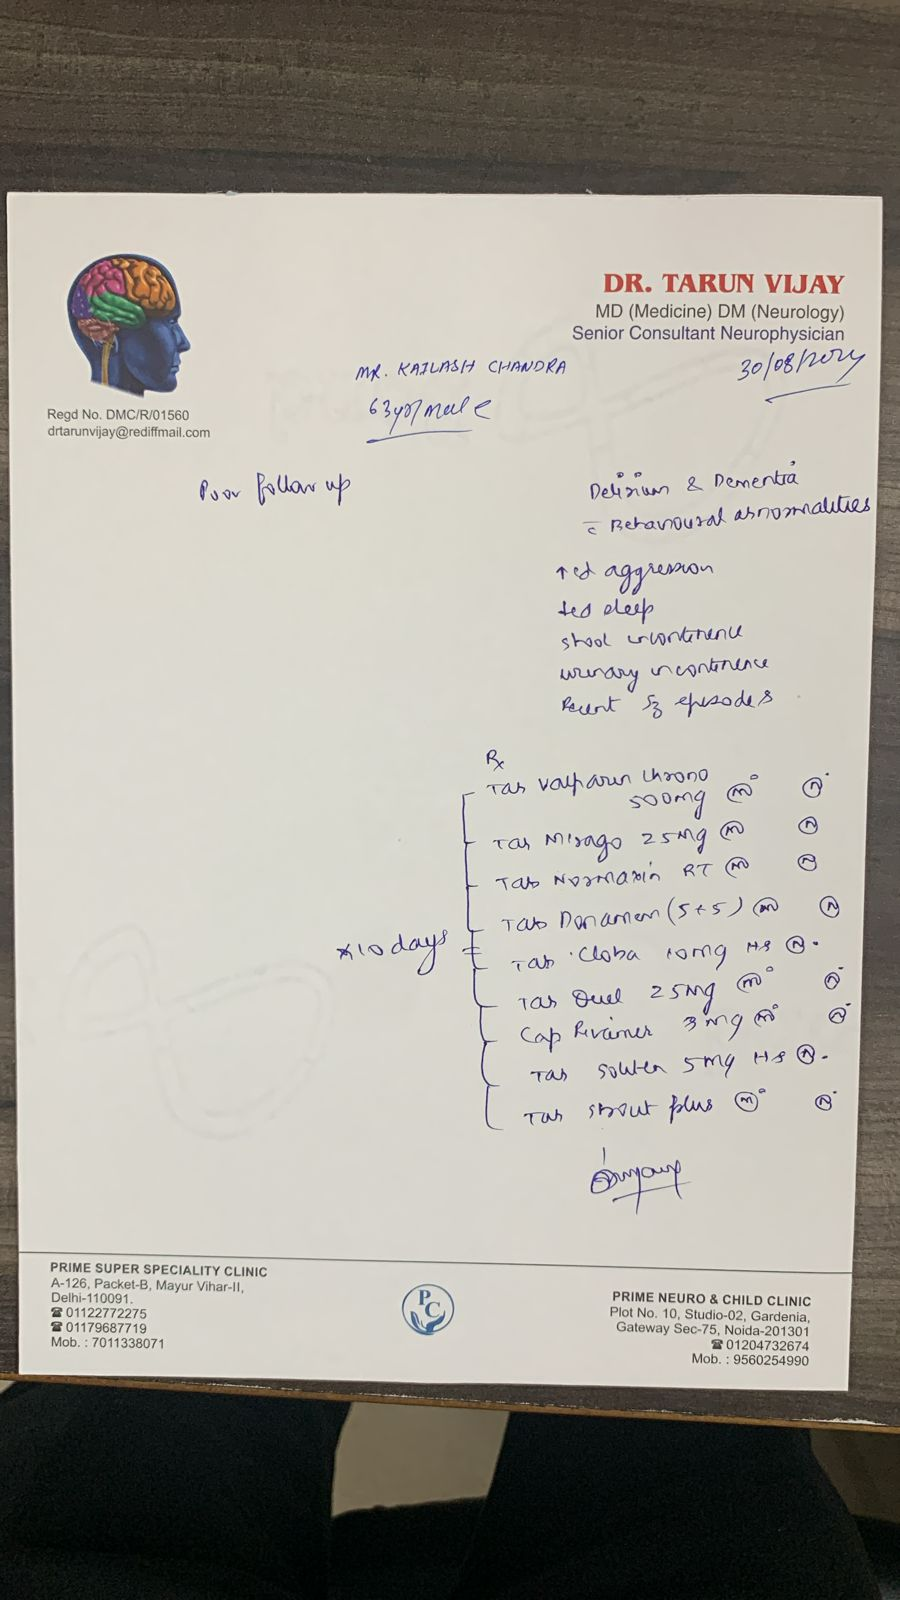 DR. TARUN VIJAY
MD (Medicine) DM (Neurology)
Senior Consultant Neurophysician
Regd No. DMC/R/01560
drtarunvijay@rediffmail.com
MR. KAILASH CHANDRA
30/08/2024
63yr/male
Poor follow up
Delirium & Dementia
c̄ Behavioural abnormalities
↑ed aggression
↓ed sleep
stool incontinence
urinary incontinence
Recent Sz episodes
Rx
Tab Valparin Chrono
500mg (M) (N)
Tab 25mg (M) (N)
Tab Normaxin RT (M) (N)
Tab Donamem (5+5) (M) (N)
x 10 days
Tab Cloba 10mg HS (N)
Tab 25mg (M) (N)
Cap 3mg (M) (N)
Tab 5mg HS (N)
Tab plus (M) (N)
PRIME SUPER SPECIALITY CLINIC
A-126, Packet-B, Mayur Vihar-II,
Delhi-110091.
☎ 01122772275
☎ 01179687719
Mob. : 7011338071
PC
PRIME NEURO & CHILD CLINIC
Plot No. 10, Studio-02, Gardenia,
Gateway Sec-75, Noida-201301
☎ 01204732674
Mob. : 9560254990